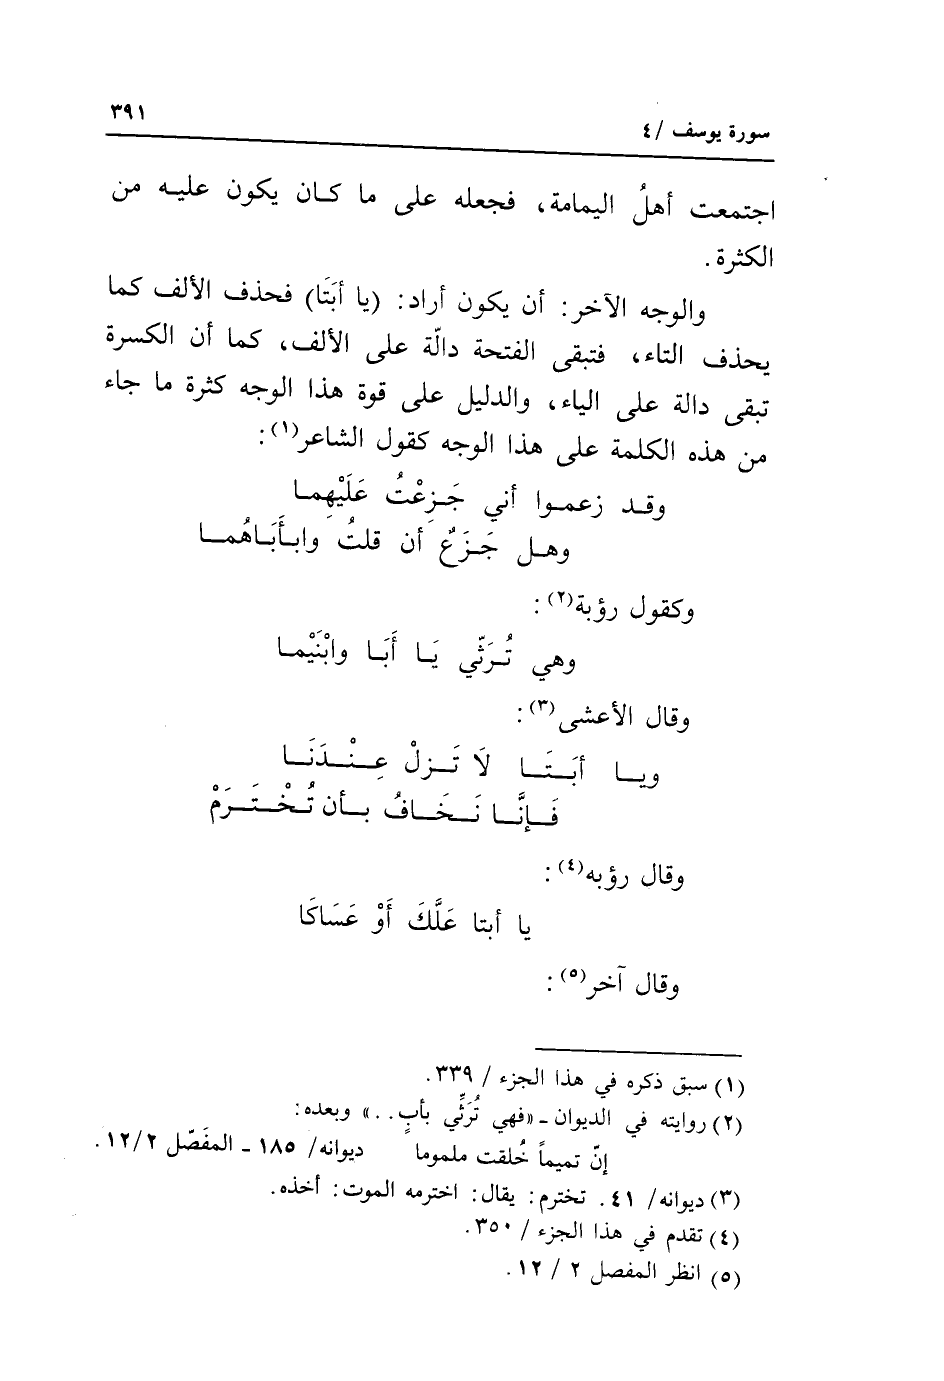 سورة يوسف / ٤
٣٩١
اجتمعت أهلُ اليمامة، فجعله على ما كـان يكون عليـه من
الكثرة.
والوجه الآخر: أن يكون أراد: (يا أبَتَا) فحذف الألف كما
يحذف التاء، فتبقى الفتحة دالّة على الألف، كما أن الكسرة
تبقى دالة على الياء، والدليل على قوة هذا الوجه كثرة ما جاء
من هذه الكلمة على هذا الوجه كقول الشاعر(١):
وقـد زعمـوا أني جَـزِعْتُ عَلَيْهِمـا
وهـل جَـزَعٌ أن قلتُ وابـأَبَـاهُمـا
وكقول رؤبة(٢):
وهي تُـرَثّي يَـا أَبَـا وابْنَيْمـا
وقال الأعشى(٣):
ويــا أبَـتَــا لَا تَـزِلْ عِـنْــدَنَــا
فَـإِنَّـا نَـخَــافُ بـأن تُـخْـتَـرَمْ
وقال رؤبه(٤):
يا أبتا عَلَّكَ أَوْ عَسَاكَا
وقال آخر(٥):
(١) سبق ذكره في هذا الجزء / ٣٣٩.
(٢) روايته في الديوان ـ «فهي تُرَثِّي بأبٍ. .» وبعده:
إنّ تميماً خُلقت ملموما ديوانه/ ١٨٥ ـ المفَصّل ١٢/٢.
(٣) ديوانه/ ٤١. تخترم: يقال: اخترمه الموت: أخذه.
(٤) تقدم في هذا الجزء / ٣٥٠.
(٥) انظر المفصل ٢ / ١٢.